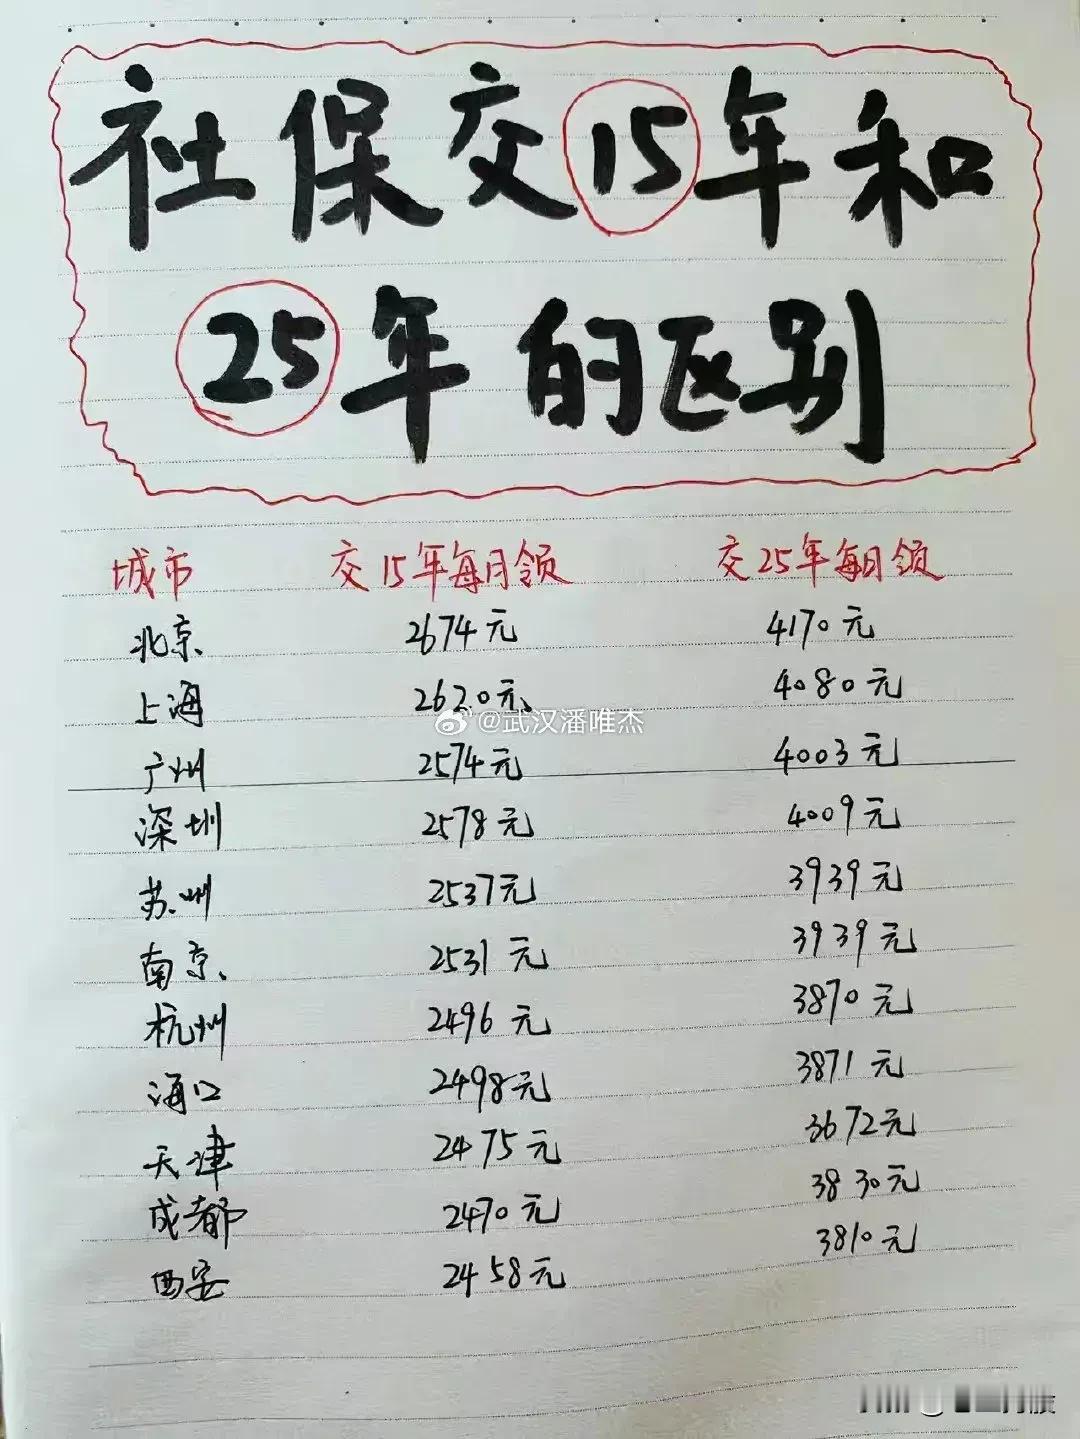 社保交15年和
25年的区别
城市 交15年每月领 交25年每月领
北京 2674元 4170元
上海 2620元 4080元
@武汉潘唯杰
广州 2574元 4003元
深圳 2578元 4009元
苏州 2537元 3939元
南京 2531元 3939元
杭州 2496元 3870元
海口 2498元 3871元
天津 2475元 3672元
成都 2470元 3830元
西安 2458元 3810元